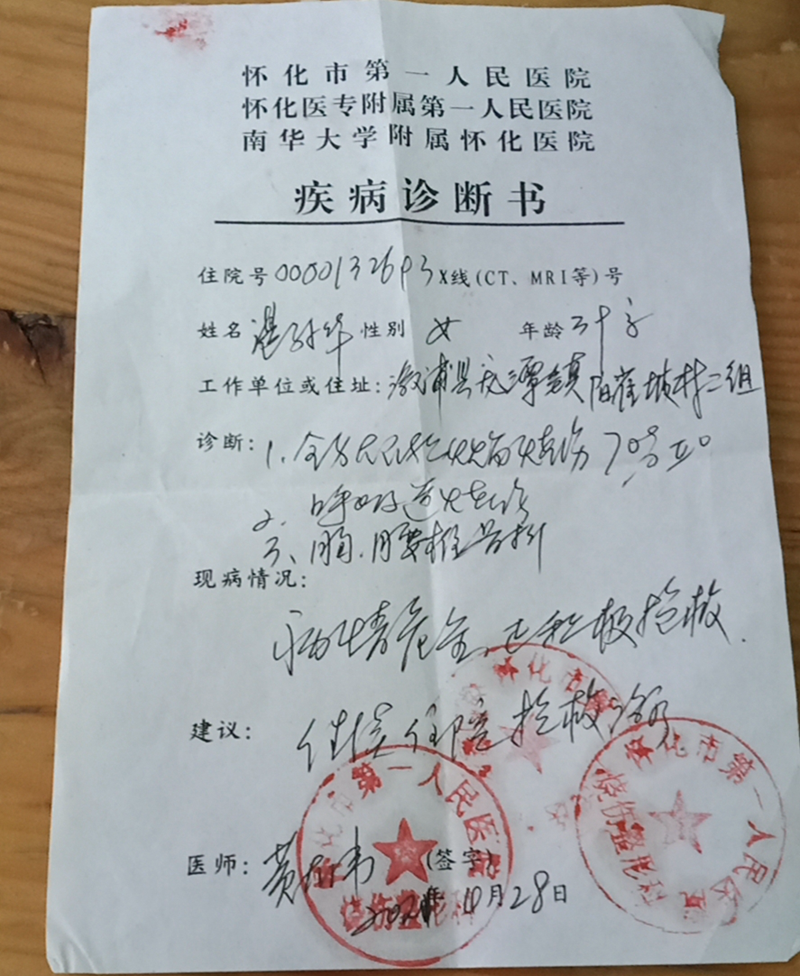 怀化市第一人民医院
怀化医专附属第一人民医院
南华大学附属怀化医院
疾病诊断书
住院号 X线(CT、MRI等)号
姓名 性别 女 年龄 三十
工作单位或住址: 溆浦县 镇 坡村二组
诊断: 1. 全身 火焰烧伤 70%
2. 呼吸道烧伤
3、胸、腰椎骨折
现病情况:
病情危重,已积极抢救.
建议: 住院抢救治疗
医师: 黄 (签字)
10月28日
怀化市第一人民医院
烧伤整形科
怀化市第
怀化市第一人民医院
烧伤整形科